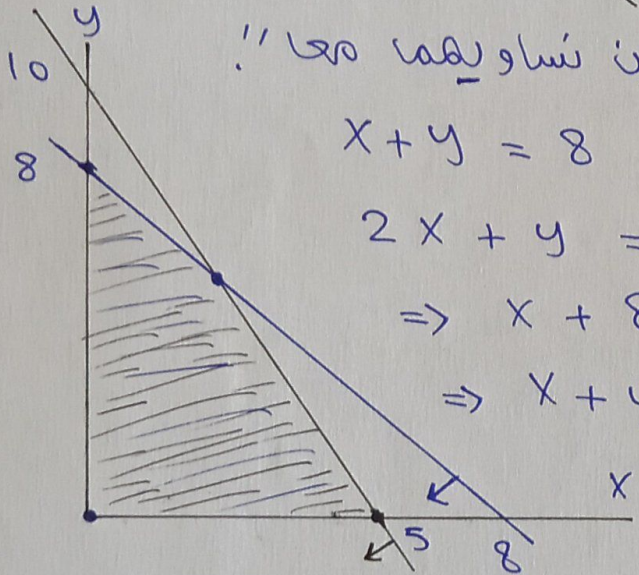 y
10
ن نساويهما معا !!
8
x + y = 8
2x + y =
=> x + 8
=> x +
x
5
8